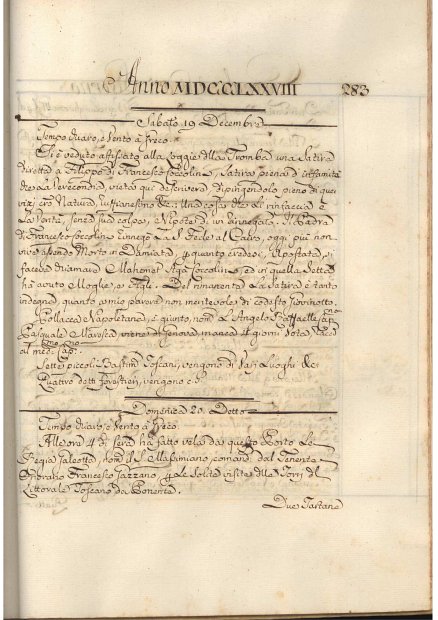 Anno MDCCLXXVIII 283
Sabato 19 Decembre
Tempo Chiaro, e Vento à Greco.
Si è veduto affissato alla Loggie della Tromba una Satira
diretta a Filippo di Francesco Soccolin, Satira piena d'infamità
che la Verecondia, vieta qui descivere, dipingendolo pieno di que
vizj Natura, &c. Una cosa che li rinfaccia è
la Verità, senza sua colpa, è Nipote di un Rinnegato. Il Padre
di Francesco Soccolin Rinnegò La S. Fede al Cairo, oggi più non
vive essendo Morto in Damiata, p. quanto credesi, Apostata, si
faceva chiamare Mahomet Agà Soccolin, ed in quella Setta
hà avuto Moglie, e Figli. Del rimanente La Satira è tanto
indegna, quanto a mio parere non meritevole di
Pollacca Napoletana, è giunto, nom. L'Angelo Raffaelle, Cap.no
Pasquale Maresca, viene di Genova, manca 4 giorni Vota, Racc.
al med. Cap.no
Sette piccoli Bastim. Toscani, vengono di Varj Luoghi &c.
Quattro detti forestieri, vengono c. s.
Domenica 20. Detto
Tempo Chiaro, e Vento à Greco.
All'ora 4 di sera hà fatto vela da questo Porto Le
Regia Galeotta, nom. il S. Massimiano, comand. dal Tenente
Onorario Francesco Lazzano, p. Le Solite visite delle Torri del
Littorale Toscano da Ponente.
Due Tartane